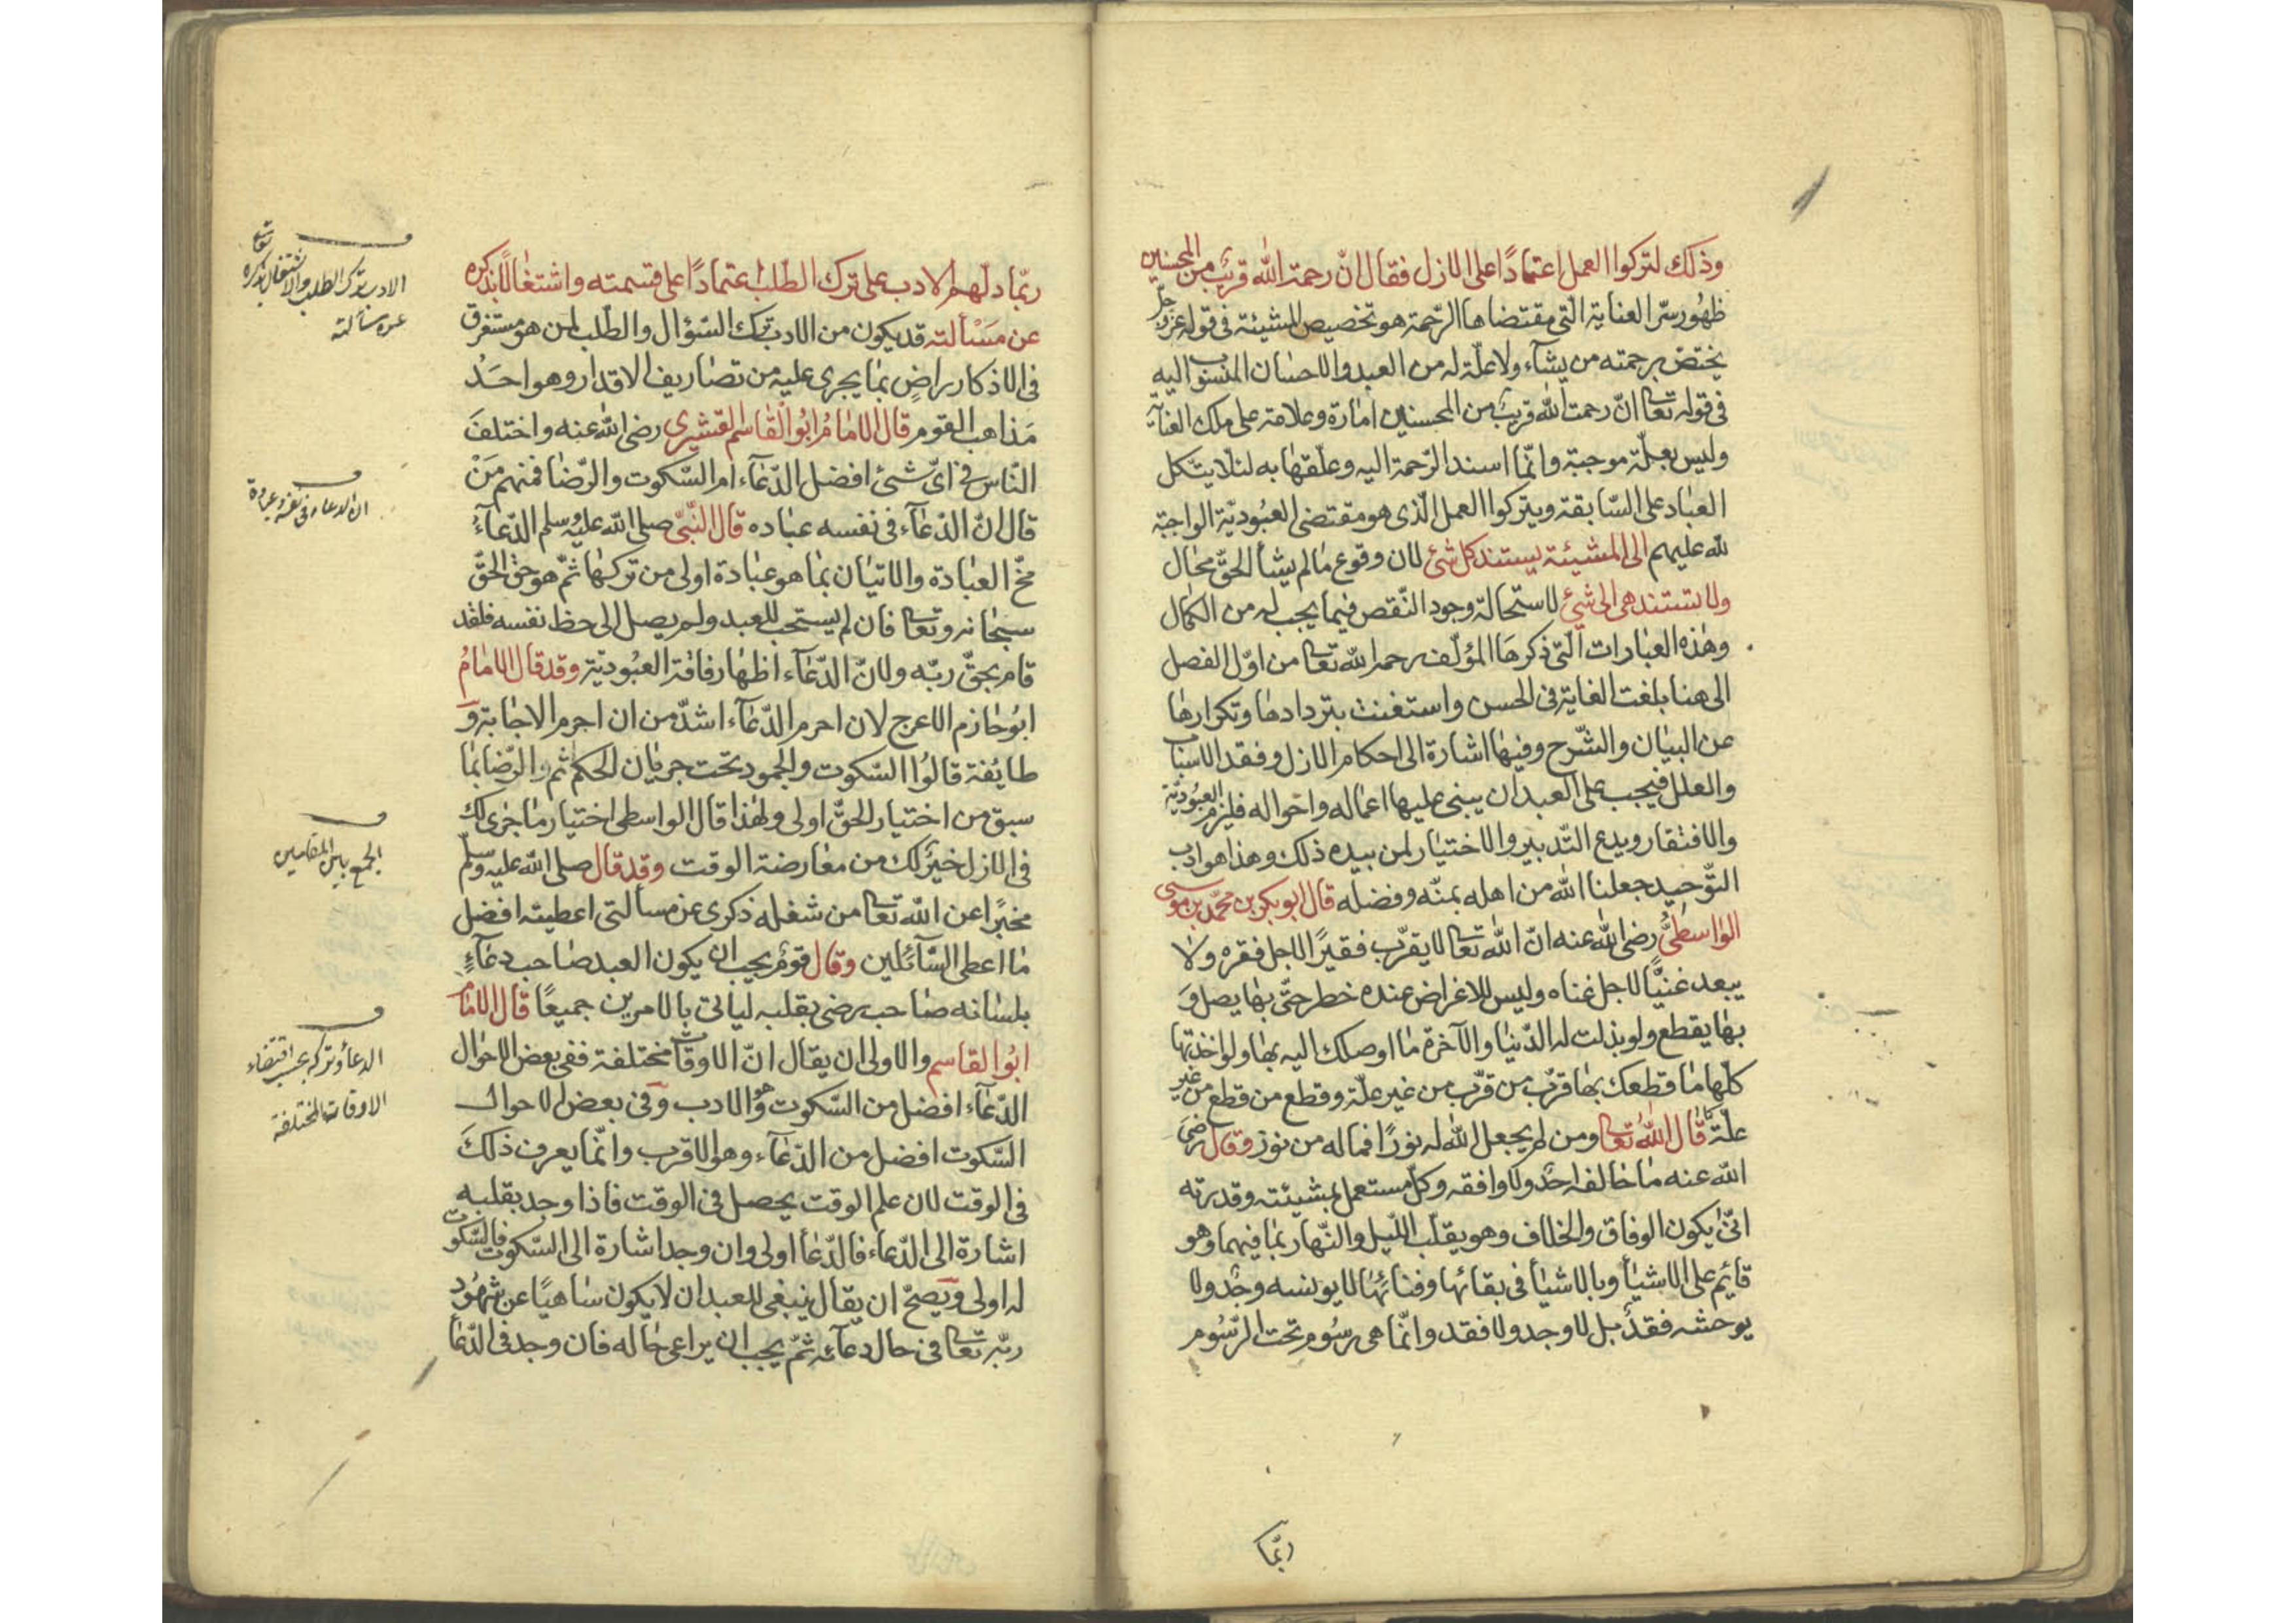 وذلك لتركوا العمل اعتمادًا على الازل فقال انّ رحمة الله قريب من المحسنين
ظهُور سرّ العناية الّتى مقتضاها الرّحمة هو تخصيص المشيئة فى قوله عزّ وجلّ
يختصّ برحمته من يشآء ولا علّة له من العبد والاحسان المنسوب اليه
فى قوله تعالى انّ رحمت الله قريب من المحسنين امارة وعلامة على تلك العناية
وليس بعلّة موجبة وانّما اسند الرّحمة اليه وعلّقها به لئلا يتّكل
العباد على السّابقة ويتركوا العمل الّذى هو مقتضى العبُوديّة الواجبة
لله عليهم الى المشيئة يستند كل شئ لان وقوع ما لم يشأ الحقّ محال
ولا تستند هى الى شئ لاستحالة وجود النّقص فيما يجب له من الكمال
وهذه العبارات الّتى ذكرها المؤلّف رحمه الله تعالى من اوّل الفصل
الى هنا بلغت الغاية فى الحسن واستغنت بتردادها وتكرارها
عن البيان والشّرح وفيها اشارة الى احكام الازل وفقد الاسباب
والعلل فيجب على العبد ان يبنى عليها اعماله واحواله فيلزم العبُوديّة
والافتقار ويدع التّدبير والاختيار لمن بيده ذلك وهذا هو ادب
التّوحيد جعلنا الله من اهله بمنّه وفضله قال ابو بكر بن محمّد بن موسى
الواسطىُّ رضى الله عنه انّ الله تعالى لا يقرّب فقيرًا لاجل فقره ولا
يبعد غنيًّا لاجل غناه وليس للاغراض عنده خطر حتّى بها يصل وَ
بها يقطع ولو بذلت له الدّنيا والآخرة ما اوصلك اليه بها ولو اخذتها
كلّها ما قطعك بها قرّب من قرّب من غير علّة وقطع من قطع من غير
علّة كما قال الله تعالى ومن لم يجعل الله له نورًا فما له من نور وقال رضى
الله عنه ما خالفه احدٌ ولا وافقه وكلٌّ مستعمل بمشيئته وقدرته
انّى يكون الوفاق والخلاف وهو يقلّب اللّيل والنّهار بما فيهما وهو
قائم على الاشيآ وبالاشيآ فى بقائها وفنائها لا يونسه وجْد ولا
يوحشه فقدٌ بل لا وجد ولا فقد وانّما هى رسُوم تحت الرّسُوم
ربّما
ربّما دلّهم الادب على ترك الطّلب اعتمادًا على قسمته واشتغالًا بذكره
عن مَسْألته قد يكون من الادب ترك السّؤال والطّلب لمن هو مستغرق
فى الاذكار راضٍ بما يجرى عليه من تصاريف الاقدار وهو احَدُ
مَذاهب القوم قال الامامُ ابُو القاسم القشيرى رضى الله عنه واختلفَ
النّاس فى اىّ شئ افضل الدّعآء ام السّكوت والرّضا فمنهم مَنْ
قال انّ الدّعآء فى نفسه عباده قال النّبىّ صلى الله عليه وسلم الدّعآءُ
مخّ العبادة والاتيان بما هو عبادة اولى من تركها ثمّ هو حق الحقّ
سبحانه وتعالى فان لم يستجب للعبد ولم يصل الى حظ نفسه فلقد
قام بحقّ ربّه ولانّ الدّعآء اظهار فاقة العبُوديّة وقد قال الامامُ
ابُو حازم الاعرج لان احرم الدّعآء اشدّ من ان احرم الاجابة وَ
طايُفة قالُوا السّكوت والجمود تحت جريان الحكم ثم والرّضا بما
سبق من اختيار الحقّ اولى ولهذا قال الواسطى اختيار ما جرى لك
فى الازل خيرٌ لك من معارضة الوقت وقد قال صلى الله عليه وسلّم
مخبرًا عن الله تعالى من شغله ذكرى عن مسألتى اعطيته افضل
ما اعطى السّآئلين وقال قومٌ يجب ان يكون العبد صاحب دعآءٍ
بلسانه صاحب رضى بقلبه ليأتى بالامرين جميعًا قال الامام
ابُو القاسم والاولى ان يقال انّ الاوقات مختلفة ففى بعض الاحوال
الدّعآء افضل من السّكوت وهو الادب وفى بعض الاحوال
السّكوت افضل من الدّعآء وهو الاقرب وانّما يعرف ذلكَ
فى الوقت لان علم الوقت يحصل فى الوقت فاذا وجد بقلبه
اشارة الى الدّعآء فالدّعآ اولى وان وجد اشارة الى السّكوت فالسّكوت
له اولى ويَصحّ ان يقال ينبغى للعبد ان لا يكون ساهيًا عن شهُود
ربّه تعالى فى حال دعآئه ثمّ يجب ان يراعى حاله فان وجد فى الدّعآ
الادب ترك الطلب والاشتغال بذكره تعالى
عن مسألته
ان الدعاء فى نفسه عبادة
الجمع بين المقامين
الدعاء وتركه بحسب اقتضاء
الاوقات المختلفة